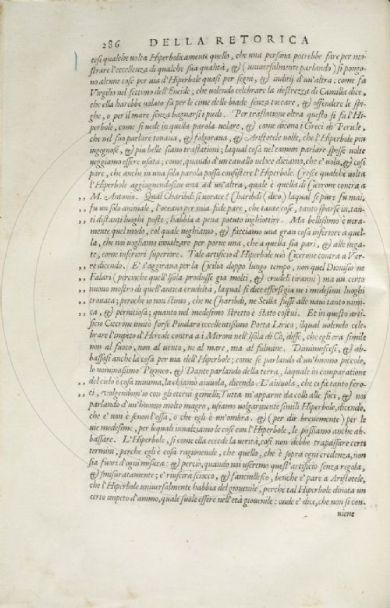 286 DELLA RETORICA
cosi qualche volta Hiperbolicamente quello, che una persona potrebbe fare per mo-
strare l'eccellenza di qualche sua qualità, &) (universalmente parlando) si pongo-
no alcune cose per via d'Hiperbole quasi per segni, &) inditij di un'altra: come fa
Virgilio nel settimo dell'Eneide, che volendo celebrare la destrezza di Camilla dice,
che ella harebbe volato sù per le cime delle biade senza toccare, &) offendere le spi-
ghe, o per il mare senza bagnarsi i piedi. Per traslatione oltra questo si fa l'Hi-
perbole, come si vede in quella parola volare, &) come diceva i Greci di Pericle,
che nel suo parlare tonava, &) folgorava, &) Aristotele vuole, che l'Hiperbole piu
ingegnose, &) piu belle siano traslationi; laqual cosa nel comun parlare spesse volte
veggiamo essere usata; come, quando d'un cavallo veloce diciamo, che e' vola, &) cosi
pare, che anche in una sola parola possa consistere l'Hiperbole. Cresce qualche volta
l'Hiperbole aggiugnendosene una ad un'altra, quale è quella di Cicerone contra a
M. Antonio. Qual Charibdi si vorace? Charibdi (dico) laqual se pure fu mai,
fu un solo animale, l'oceano à pena, mi par, che tante cose, tanto sparse in tan-
ti distanti luoghi poste, habbia a pena potuto inghiottire. Ma bellissimo è vera-
mente quel modo, col quale vogliamo, &) facciamo una gran cosa inferiore a quel-
la, che noi vogliamo inalzare per porne una, che a quella sia pari, &) alle inga-
te, come inferiori superiore. Tale artificio d'Hiperbole usò Cicerone contra a Ver-
re dicendo. E' s'aggirava per la Cicilia doppo lungo tempo, non quel Dionisio ne
Falari (percioche quell'isola produsse già molti, &) crudeli tiranni) ma un certo
nuovo mostro di quell'antica crudeltà, laqual si dice essersi già ne i medesimi luoghi
trovata; peroche io non stimo, che ne Charibdi, ne Scilla fusse alle navi tanto nimi-
ca, &) perniciosa; quanto nel medesimo stretto è stato costui. Et in questo arti-
ficio Cicerone imitò forse Pindaro eccellentissimo Poeta Lirico, ilqual volendo cele-
brare l'impeto d'Hercole contra a i Meropi nell'isola di Cò, disse, che egli era simile
non al fuoco, non al vento, ne al mare, ma al fulmine. Diminuiscesi, &) ab-
bassasi anche la cosa per via dell'Hiperbole; come se parlando d'un huomo piccolo,
lo nominassimo Pigmeo, &) Dante parlando della terra, laquale in comparatione
del cielo è cosa minima, la chiamò aiuola, dicendo. L'aiuola, che ci fa tanto fero-
ci, volgendom'io con gli eterni gemelli, Tutta m'apparve da colli alle foci, &) noi
parlando d'un huomo molto magro, usiamo volgarmente simili Hiperbole, dicendo,
che e' non è se non l'ossa, o che egli è un'ombra. &) (per dir brevemente) per le
vie medesime, per lequali innalziamo le cose con l'Hiperbole, le possiamo anche ab-
bassare. L'Hiperbole, si come ella eccede la verità, cosi non debbe trapassare certi
termini, perche egli è cosa ragionevole, che quello, che è sopra ogni credenza, non
sia fuora d'ogni misura: &) perciò, quando noi useremo quest'artificio senza regola,
&) smisuratamente; e' riuscirà sciocco, &) fanciullesco, benche e' pare a Aristotele,
che l'Hiperbole universalmente habbia del giovenile, perche tal Hiperbole dinota un
certo impeto d'animo, quale suole essere nell'età giovenile: onde e' dice, che non si con-
viene